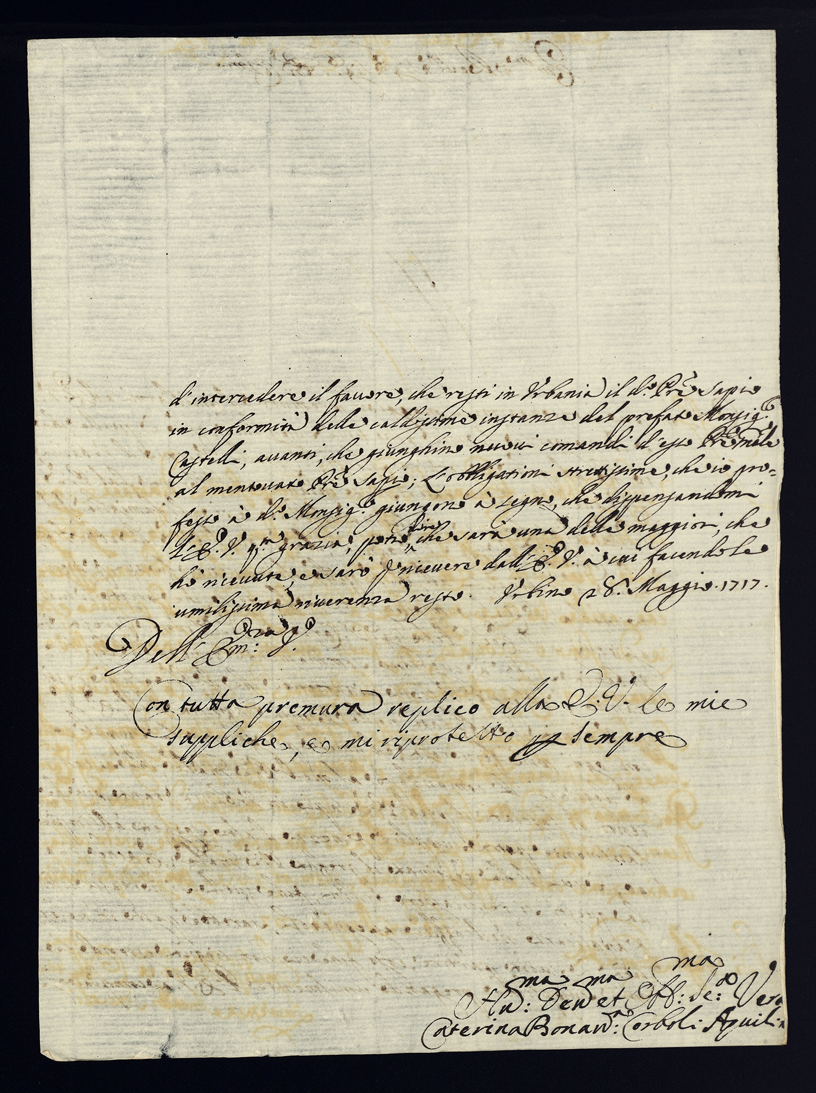 d'intercedere il favore, che resti in Urbania il d.º Prē Sapio
in conformità delle caldissime instanze del prefato Monsig.r
Castelli, avanti, che giunghino nuovi comandi d'esso
al mentovato Prē Sapio; L'obbligationi strettissime, che io pro=
fesso à d.º Monsig.r giungono à segno, che dispensandomi
l'E. V. q.ta grazia, che sarà una delle maggiori, che
hò ricevute, e sarò p ricevere dall'E. V. à cui facendole
umilissima riverenza resto. Urbino 28. Maggio. 1717.
Dell' Em:za V.
Con tutta premura replico alla E. V. le mie
suppliche, e mi riprotesto p sempre
Hu:ma Dev:ma et Obb:ma Se:a Vera
Caterina Bonav:a Corboli Aquilin